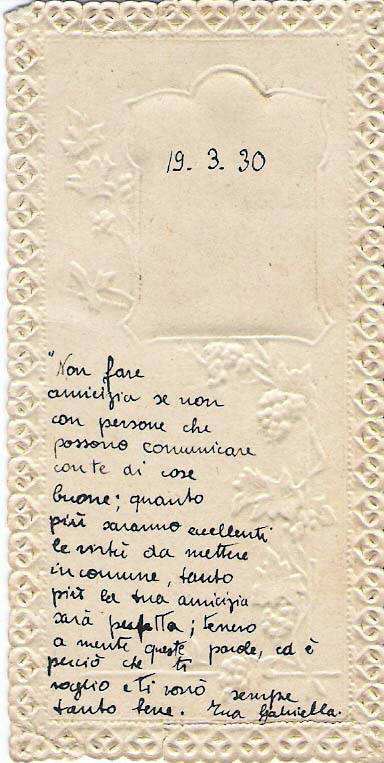 19. 3. 30
"Non fare
amicizia se non
con persone che
possono comunicare
con te di cose
buone; quanto
più saranno eccellenti
le virtù da mettere
in comune, tanto
più la tua amicizia
sarà perfetta; tenero
a mente queste parole, ed è
perciò che ti
voglio e ti vorrò sempre
tanto bene. Tua Gabriella.